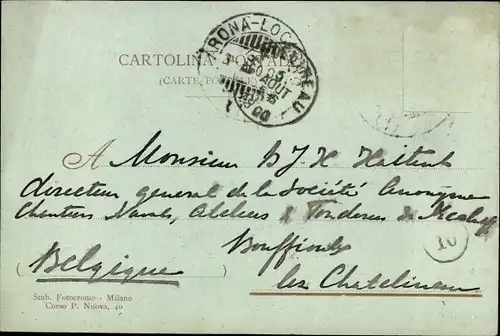 CARTOLINA POSTALE
(CARTE POSTALE)
ARONA-LOC
AOUT
A Monsieur
directeur général de la Société Anonyme
Chantiers Navals, Ateliers & Fonderies de
Bouffioulx
(Belgique)
lez Chatelineau
10
Stab. Fotocromo - Milano
Corso P. Nuova, 40